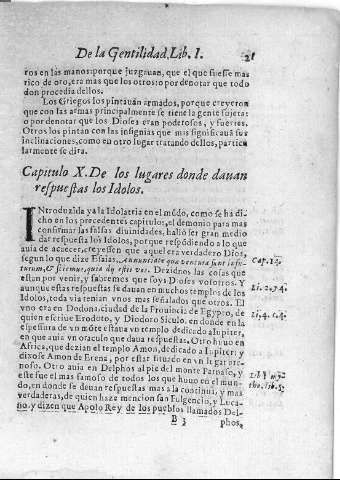 De la Gentilidad, Lib. I. 21
ros en las manos: porque juzgauan, que el que fuesse mas
rico de oro, era mas que los otros: o por denotar que todo
don procedia dellos.
Los Griegos los pintauan armados, porque creyeron
que con las armas principalmente se tiene la gente sujeta:
o por denotar que los Dioses eran poderosos, y fuertes.
Otros los pintan con las insignias que mas significauã sus
inclinaciones, como en otro lugar tratando dellos, particu
larmente se dira.
Capitulo X. De los lugares donde dauan
respuestas los Idolos.
INtroduzida ya la Idolatria en el mũdo, como se ha di-
cho en los precedentes capitulos, el demonio para mas
confirmar las falsas diuinidades, hallò ser gran medio
dar respuesta los Idolos, porque respõdiendo a lo que
auia de acaecer, creyessen que aquel era verdadero Dios,
segun lo que dize Esaias. Annuntiate quæ ventura sunt in fu-
turum, & sciemus, quia dij estis vos. Dezidnos las cosas que
estan por venir, y sabremos que soys Dioses vosotros. Y
aunque estas respuestas se dauan en muchos templos de los
Idolos, toda via tenian vnos mas señalados que otros. El
vno era en Dodona, ciudad de la Prouincia de Egypto, de
quien escriue Erodoto, y Diodoro Siculo, en donde en la
espessura de vn mõte estaua vn templo dedicado a Iupiter,
en que auia vn oraculo que daua respuestas. Otro huuo en
Africa, que dezian el templo Amon, dedicado a Iupiter: y
dixose Amon de Erena, por estar situado en vn lugar are-
noso. Otro auia en Delphos al pie del monte Parnaso, y
este fue el mas famoso de todos los que huuo en el mun-
do, en donde se dauan respuestas mas a la continua, y mas
verdaderas, de quien haze mencion san Fulgencio, y Luca-
no, y dizen que Apolo Rey de los pueblos llamados Del-
B 3 phos,
Cap. 14.